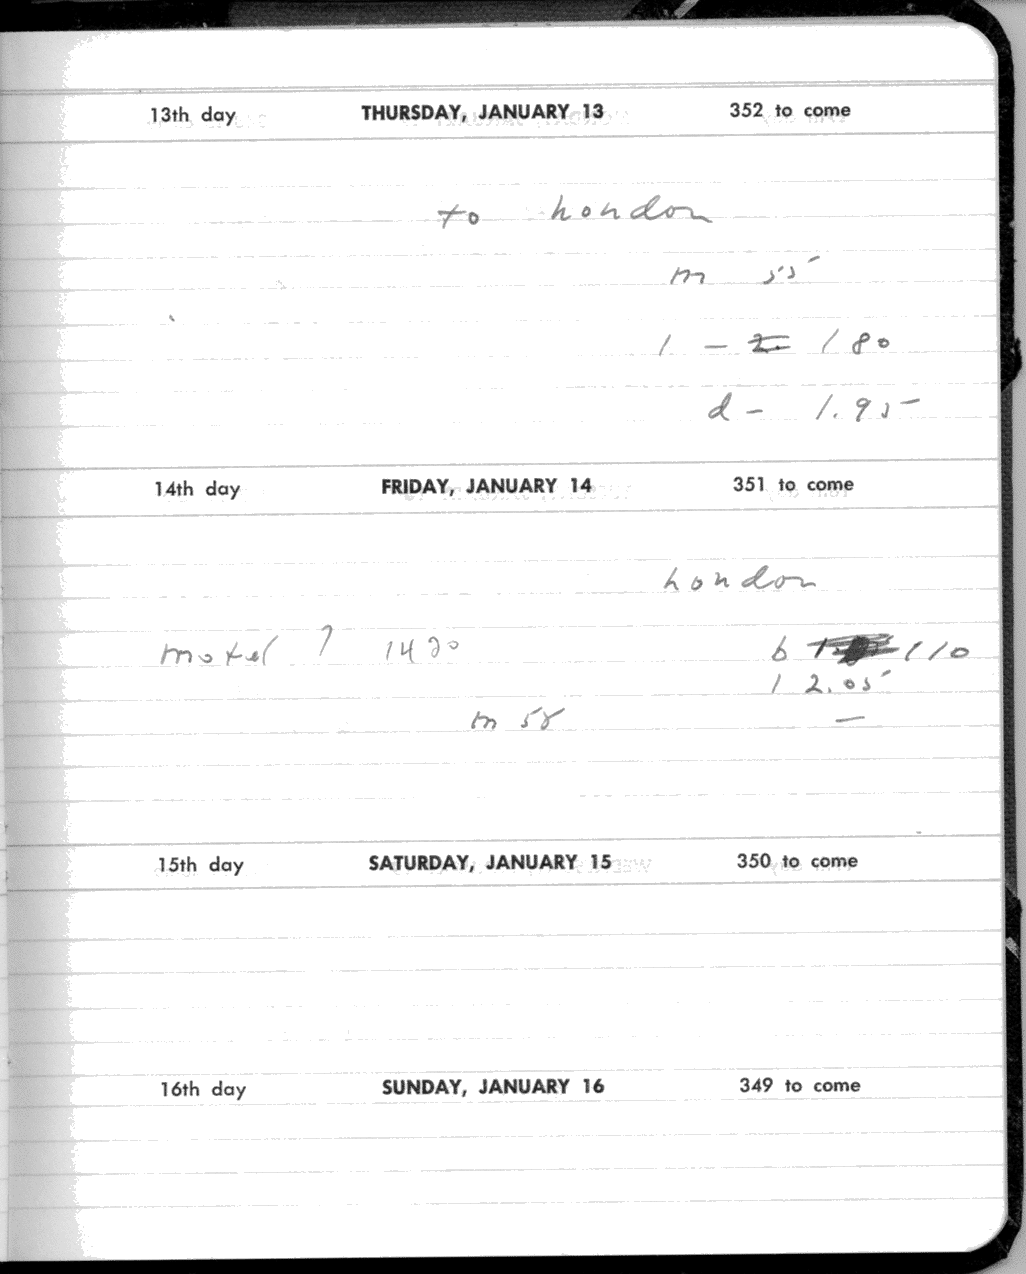 13th day THURSDAY, JANUARY 13 352 to come
to London
m 55
1 - 180
d - 1.95
14th day FRIDAY, JANUARY 14 351 to come
London
motel 1420 b 110
1 2.05
m 58
15th day SATURDAY, JANUARY 15 350 to come
16th day SUNDAY, JANUARY 16 349 to come